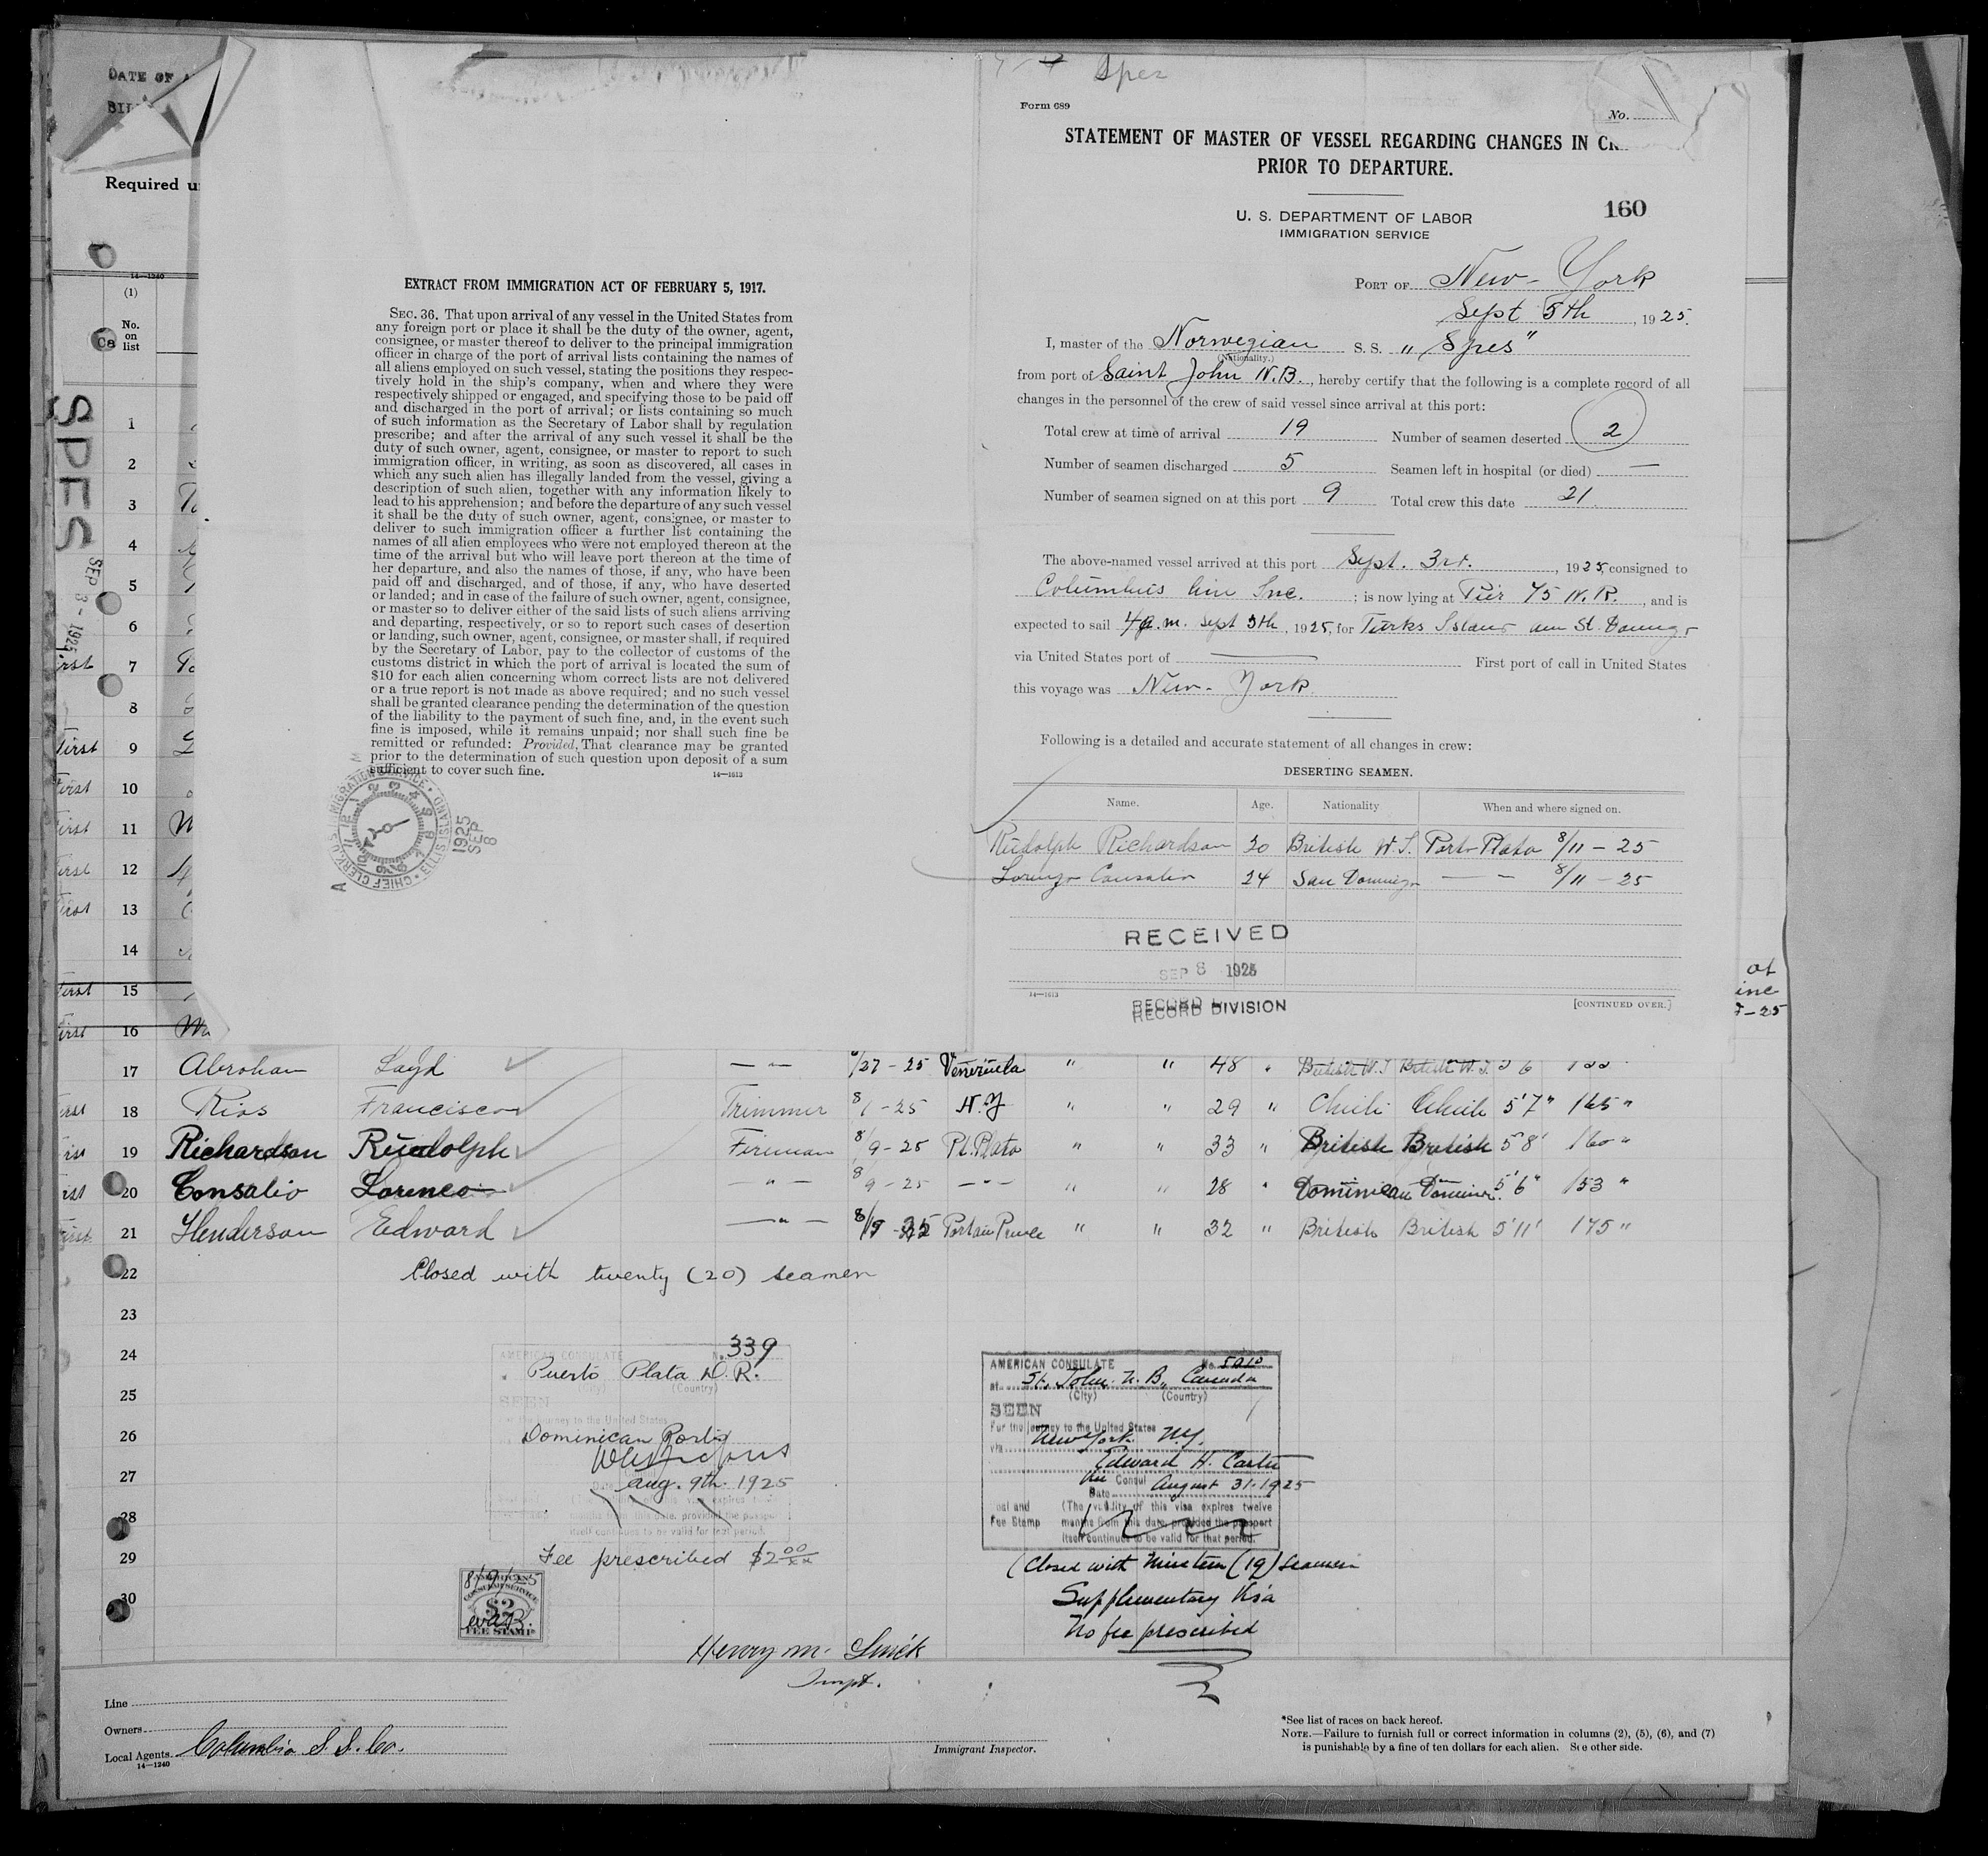 DATE OF
Required u
14—1240
(1)
No.
on
list
SPES
SEP 3 - 1925
1
2
3
4
5
6
7
8
9
10
11
12
13
14
15
16
EXTRACT FROM IMMIGRATION ACT OF FEBRUARY 5, 1917.
SEC. 36. That upon arrival of any vessel in the United States from
any foreign port or place it shall be the duty of the owner, agent,
consignee, or master thereof to deliver to the principal immigration
officer in charge of the port of arrival lists containing the names of
all aliens employed on such vessel, stating the positions they respec-
tively hold in the ship's company, when and where they were
respectively shipped or engaged, and specifying those to be paid off
and discharged in the port of arrival; or lists containing so much
of such information as the Secretary of Labor shall by regulation
prescribe; and after the arrival of any such vessel it shall be the
duty of such owner, agent, consignee, or master to report to such
immigration officer, in writing, as soon as discovered, all cases in
which any such alien has illegally landed from the vessel, giving a
description of such alien, together with any information likely to
lead to his apprehension; and before the departure of any such vessel
it shall be the duty of such owner, agent, consignee, or master to
deliver to such immigration officer a further list containing the
names of all alien employees who were not employed thereon at the
time of the arrival but who will leave port thereon at the time of
her departure, and also the names of those, if any, who have been
paid off and discharged, and of those, if any, who have deserted
or landed; and in case of the failure of such owner, agent, consignee,
or master so to deliver either of the said lists of such aliens arriving
and departing, respectively, or so to report such cases of desertion
or landing, such owner, agent, consignee, or master shall, if required
by the Secretary of Labor, pay to the collector of customs of the
customs district in which the port of arrival is located the sum of
$10 for each alien concerning whom correct lists are not delivered
or a true report is not made as above required; and no such vessel
shall be granted clearance pending the determination of the question
of the liability to the payment of such fine, and, in the event such
fine is imposed, while it remains unpaid; nor shall such fine be
remitted or refunded: Provided, That clearance may be granted
prior to the determination of such question upon deposit of a sum
sufficient to cover such fine. 14—1613
1925 SEP 8
Spes
Form 689
No.
STATEMENT OF MASTER OF VESSEL REGARDING CHANGES IN
PRIOR TO DEPARTURE.
U. S. DEPARTMENT OF LABOR
IMMIGRATION SERVICE
160
PORT OF New-York
Sept 5th, 1925.
I, master of the Norwegian S. S. "Spes"
(Nationality.)
from port of Saint John N.B., hereby certify that the following is a complete record of all
changes in the personnel of the crew of said vessel since arrival at this port:
Total crew at time of arrival 19 Number of seamen deserted 2
Number of seamen discharged 5 Seamen left in hospital (or died) —
Number of seamen signed on at this port 9 Total crew this date 21.
The above-named vessel arrived at this port Sept. 3rd., 1925, consigned to
Columbus Line Inc.; is now lying at Pier 75 N.R., and is
expected to sail 4 a.m. Sept 5th, 1925, for Turks Island St. Domingo
via United States port of — First port of call in United States
this voyage was New-York
Following is a detailed and accurate statement of all changes in crew:
DESERTING SEAMEN.
Name. Age. Nationality When and where signed on.
Rudolph Richardson 30 British W.I. Porto Plato 8/11 - 25
Lorenzo Consalio 24 San Domingo — — 8/11 - 25
RECEIVED
SEP 8 1925
RECORD DIVISION
14—1613
[CONTINUED OVER.]
17 Abrohan Layd — — 6/27 - 25 Venezuela " " 48 " British W.I. British W.I. 5 6
18 Rios Francisco Trimmer 8/1 - 25 N.Y " " 29 " Chili Chili 5'7" 165 "
19 Richardson Rudolph Fireman 8/9 - 25 Pt. Plato " " 33 " British British 5'8' 160 "
20 Consalio Lorenco — " — 8/9 - 25 — " — " " 28 " Dominican 5'6" 153 "
21 Henderson Edward — " — Port au Prince " " 32 " British British 5'11' 175 "
22 Closed with twenty (20) seamen
23
24
25
26
27
28
29
30
AMERICAN CONSULATE No. 339
Puerto Plata D.R.
(City) (Country)
SEEN
For the journey to the United States
Dominican Ports
Aug. 9th. 1925
months from this date, provided the passport
itself continues to be valid for that period.
Fee prescribed $2 00/xx
8/9/25
AMERICAN
CONSULAR SERVICE
$2
FEE STAMP
AMERICAN CONSULATE No. 5010
at St. John. N. B., Canada
(City) (Country)
SEEN
For the journey to the United States
via New York N.Y.
Edward H. Carter
Vice Consul
Date August 31. 1925
(The validity of this visa expires twelve
Fee Stamp months from this date, provided the passport
itself continues to be valid for that period.
(Closed with Nineteen (19) Seamen
Supplementary Visa
No fee prescribed
Henry M. Smick
Inspt.
Line
Owners
Local Agents Columbia S.S. Co.
14—1240
Immigrant Inspector.
*See list of races on back hereof.
NOTE.—Failure to furnish full or correct information in columns (2), (5), (6), and (7)
is punishable by a fine of ten dollars for each alien. See other side.